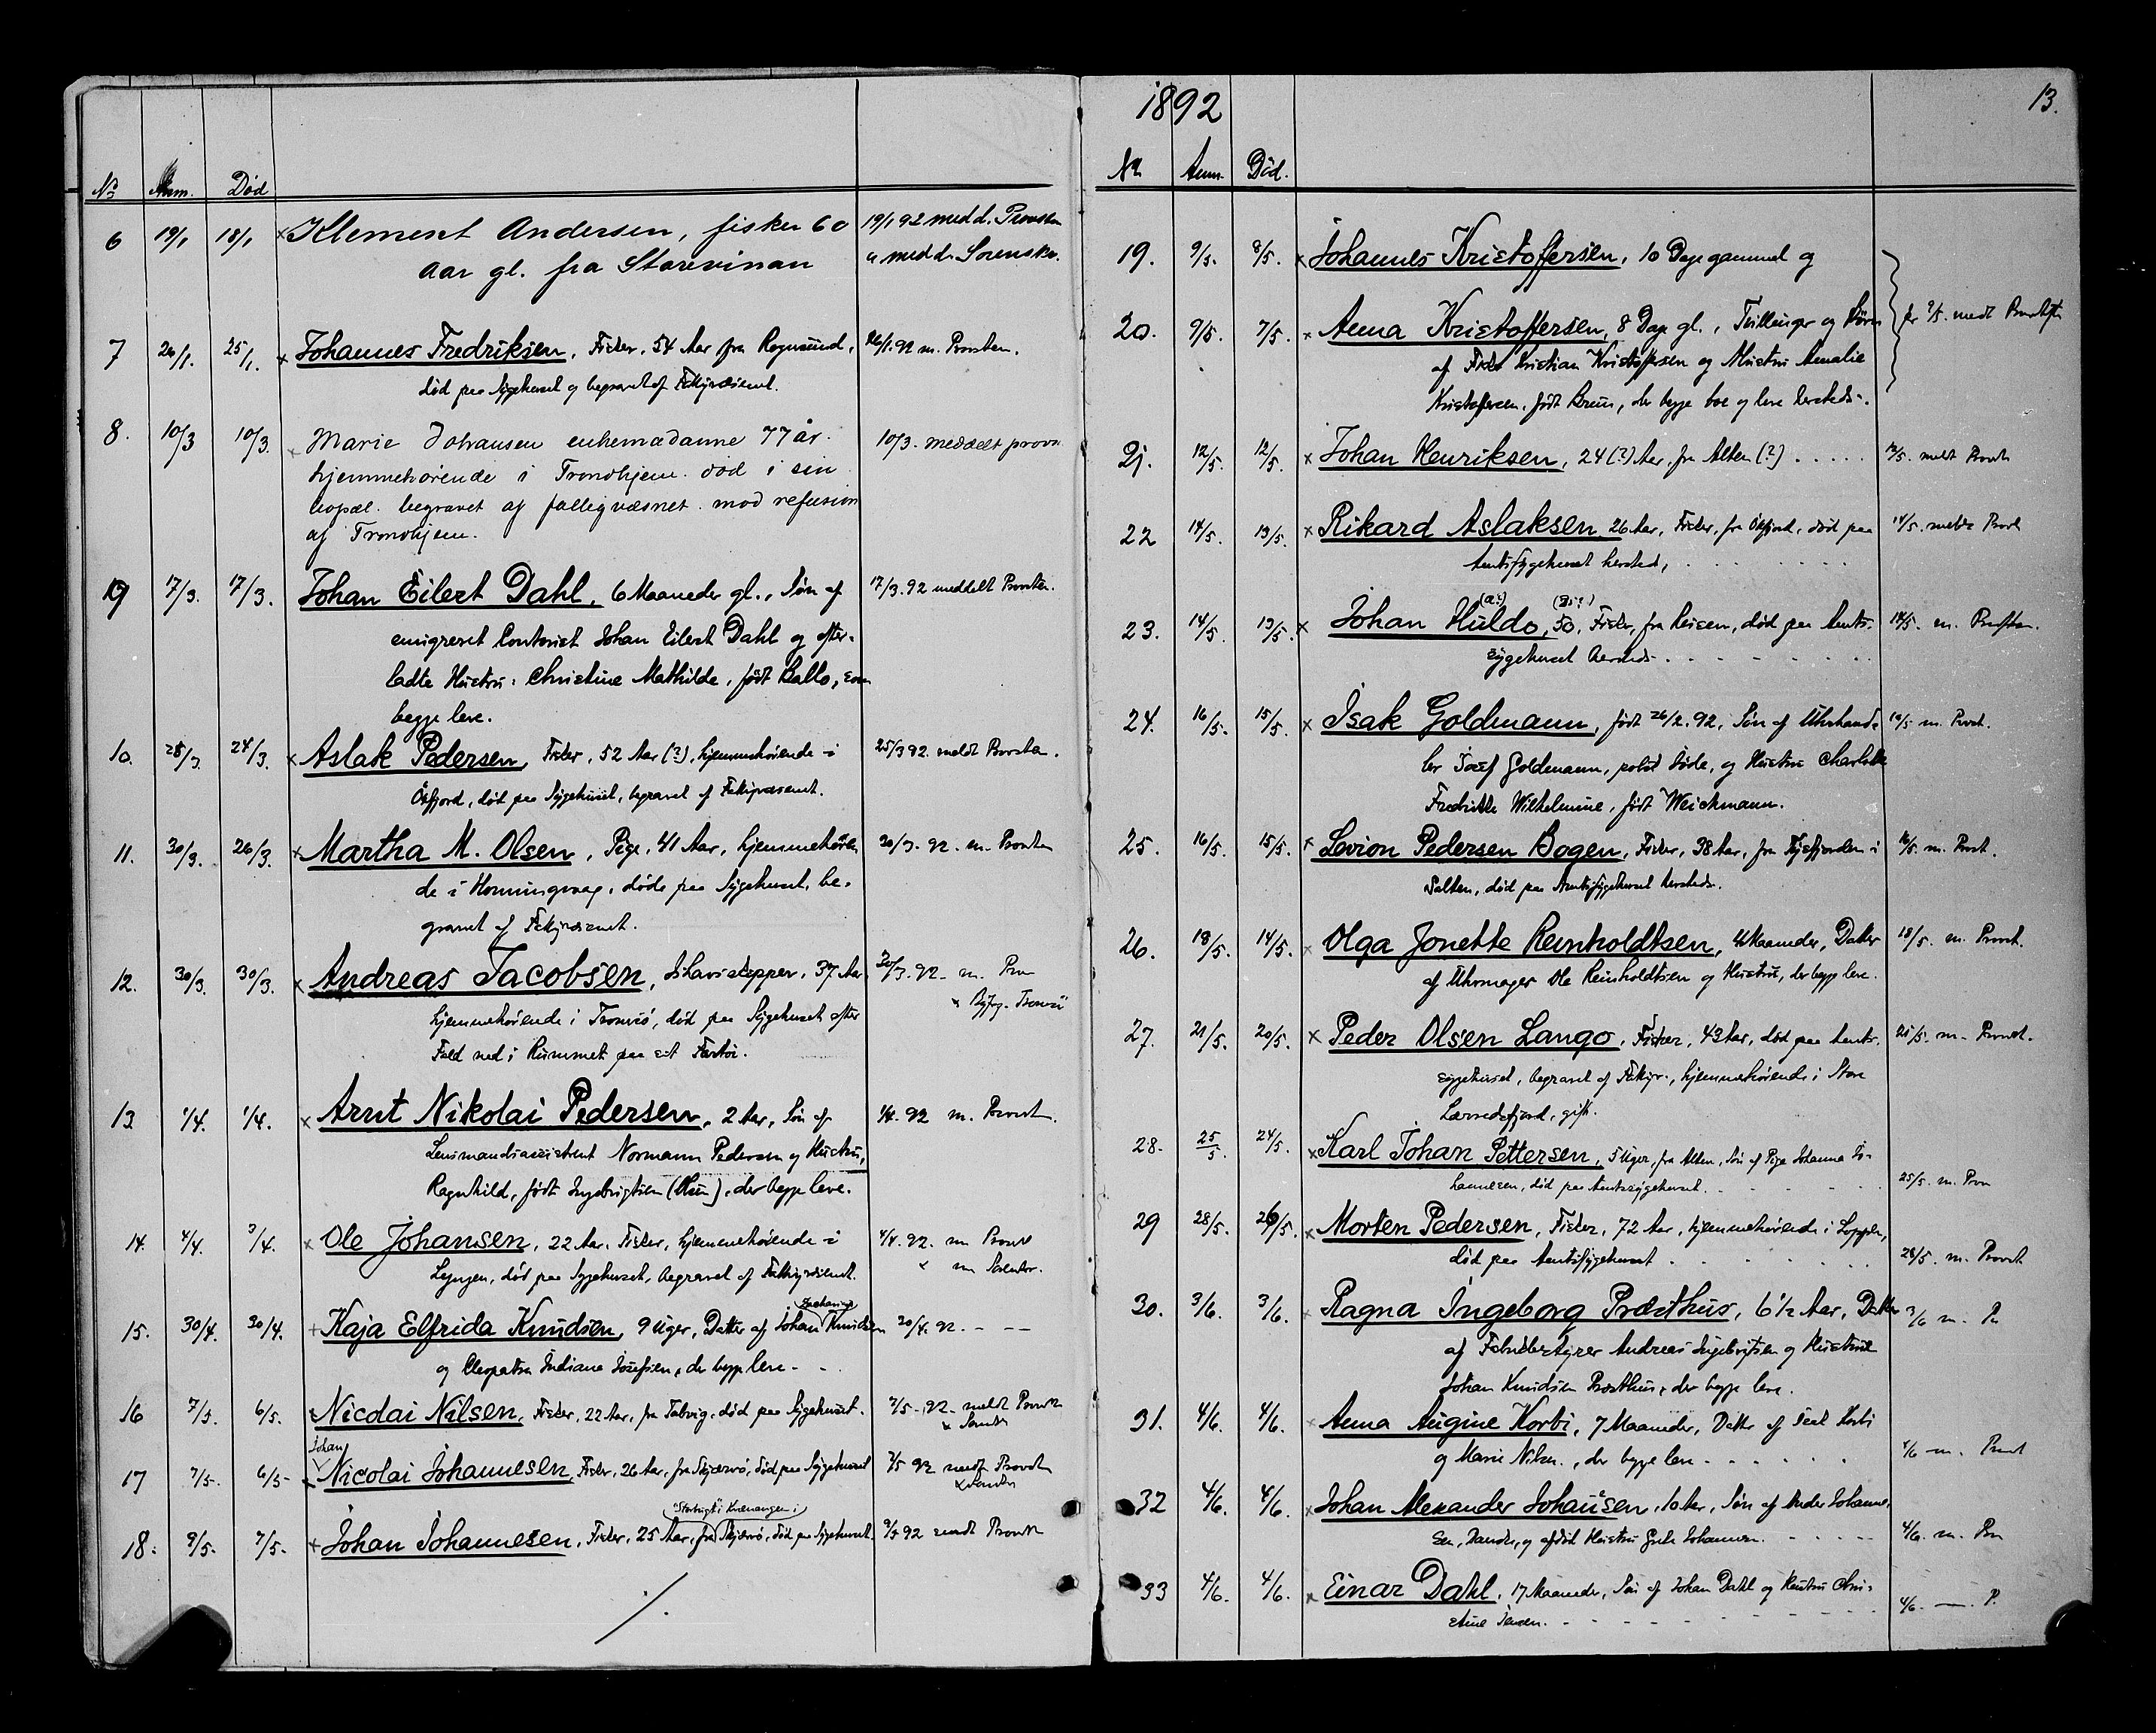 1892
13.
No Anm. Død
6 19/1 18/1 x Klement Andersen, fisker 60 19/1 92 medd. Provsten
Aar gl. fra Storevinan a medd. Sorenskr.
7 26/1. 25/1. x Johannes Fredriksen, Fisker, 54 Aar fra Rognsund, 26/1. 92 m. Provsten.
død paa Sygehuset og begravet af Fattigvæsenet.
8. 10/3 10/3. x Marie Johansen enkemadamme 77 år. 10/3. meddelt provs
hjemmehørende i Trondhjem. død i sin
bopæl. begravet af fattigvæsnet. mod refusion
af Trondhjem.
9 17/3. 17/3. Johan Eilert Dahl, 6 Maaneder gl., Søn af 17/3. 92 meddelt Provsten.
emigreret Contorist Johan Eilert Dahl og efter-
ladte Hustru: Christine Mathilde, født Ballo, som
begge leve.
10. 25/3. 24/3. x Aslak Pedersen, Fisker, 52 Aar (?), hjemmehørende i 25/3 92. meldt Provsten.
Øxfjord, død paa Sygehuset, begravet af Fattigvæsenet.
11. 30/3. 26/3. x Martha M. Olsen, Pige, 41 Aar, hjemmehøren 30/3. 92. m. Provsten
de i Honningvaag, døde paa Sygehuset, be-
gravet af Fattigvæsenet.
12. 30/3. 30/3. x Andreas Jacobsen, Ishavsskipper, 37 Aar 30/3. 92. m. Prov
hjemmehørende i Tromsø, død paa Sygehuset efter x Byfog. Tromsø
Fald ned i Rummet paa sit Fartøi.
13 1/4. 1/4. x Arnt Nikolai Pedersen, 2 Aar, Søn af 1/4. 92 m. Provst.
Lensmandsassistent Normann Pedersen og Hustru,
Ragnhild, født Ingebrigtsen (Olsen), der begge leve.
14. 4/4. 3/4. x Ole Johansen, 22 Aar, Fisker, hjemmehørende i 4/4. 92. m Provst
Lyngen, død paa Sygehuset, begravet af Fattigvæsenet. x m Sorenskr.
Zacharias
15. 30/4. 30/4. + Kaja Elfrida Knudsen, 9 Uger, Datter af Johan Knudsen 30/4. 92. — —
og Cleopatra Indiana Josefsen, der begge leve.
16 7/5. 6/5. x Nicolai Nilsen, Fisker, 22 Aar, fra Talvig, død paa Sygehuset. 7/5. 92. meldt Provst
Johan
17 7/5. 6/5. x Nicolai Johannesen, Fisker, 26 Aar, fra Skjærvø, død paa Sygehuset 7/5 92 meldt Provst
"Storbugt" i Kvænangen i
18. 9/5. 7/5. x Johan Johannesen, Fisker, 25 Aar, fra Skjærvø, død paa Sygehuset. 9/5 92 meldt Provst
No Anm. Død.
19. 9/5. 8/5. x Johannes Kristoffersen, 10 Dage gammel og
20. 9/5. 7/5. x Anna Kristoffersen, 8 Dage gl., Tvillinger og Børn
af Fisker Kristian Kristoffersen og Hustru Amalie
Kristoffersen, født Bruun, der begge boe og leve hersteds.
21. 12/5. 12/5. x Johan Henriksen, 24 (?) Aar, fra Alten (?) . . . . . 12/5. meldt Provst
22 14/5. 13/5. x Rikard Aslaksen, 26 Aar, Fisker, fra Øxfjord, død paa 14/5. meldt Provst
Amtssygehuset hersted, . . . . .
(a?)
23. 14/5. 13/5. x Johan Huldo, 50, Fisker, fra Reisen, død paa Amts- 14/5. m. Provsten.
sygehuset hersteds. . . . . .
24. 16/5. 15/5. x Isak Goldmann, født 26/2. 92, Søn af Uhrhand- m. Provst.
ler Josef Goldmann, polsk Jøde, og Hustru Charlotte
Fredrikke Wilhelmine, født Weichmann.
25. 16/5. 15/5. x Levion Pedersen Bogen, Fisker, 38 Aar, fra Tysfjorden i 16/5. m. Provst.
Salten, død paa Amtssygehuset hersteds.
26. 18/5. 14/5. x Olga Jonette Reinholdtsen, 4 Maaneder, Datter 18/5. m. Provst.
af Uhrmager Ole Reinholdtsen og Hustru, der begge leve.
27. 21/5. 20/5. x Peder Olsen Lango, Fisker, 43 Aar, død paa Amts- 21/5. m. Provst.
sygehuset, begravet af Fattigv., hjemmehørende i Store
Lærredsfjord, gift.
28. 25/5. 24/5. x Karl Johan Pettersen, 5 Uger, fra Alten, Søn af Pige Johanna Jo-
hannesen, død paa Amtssygehuset. . . . . 25/5. m. Prov
29 28/5. 26/5. x Morten Pedersen, Fisker, 72 Aar, hjemmehørende i Loppen,
død paa Amtssygehuset . . . . . 28/5. m. Provst
30. 3/6. 3/6. x Ragna Ingeborg Præsthus, 6 1/2 Aar, Datter 3/6 m. P
af Fabrikbestyrer Andreas Ingebrigtsen og Hustru
Johan Knudsen Præsthus, der begge leve.
31. 4/6. 4/6. x Anna Augine Korbi, 7 Maaneder, Datter af Korbi
og Marie Nilsen, der begge leve . . . . . 4/6 m. Provst
32 4/6. 4/6. x Johan Alexander Johansen, 10 Aar, Søn af Anders Johanne-
sen, og afdød Hustru Grete Johannesen. . . . . 4/6. m. Prov
33 4/6. 4/6. x Einar Dahl, 17 Maaneder, Søn af Johan Dahl og Hustru Chri-
stine Jensen. . . . . . 4/6. — P.